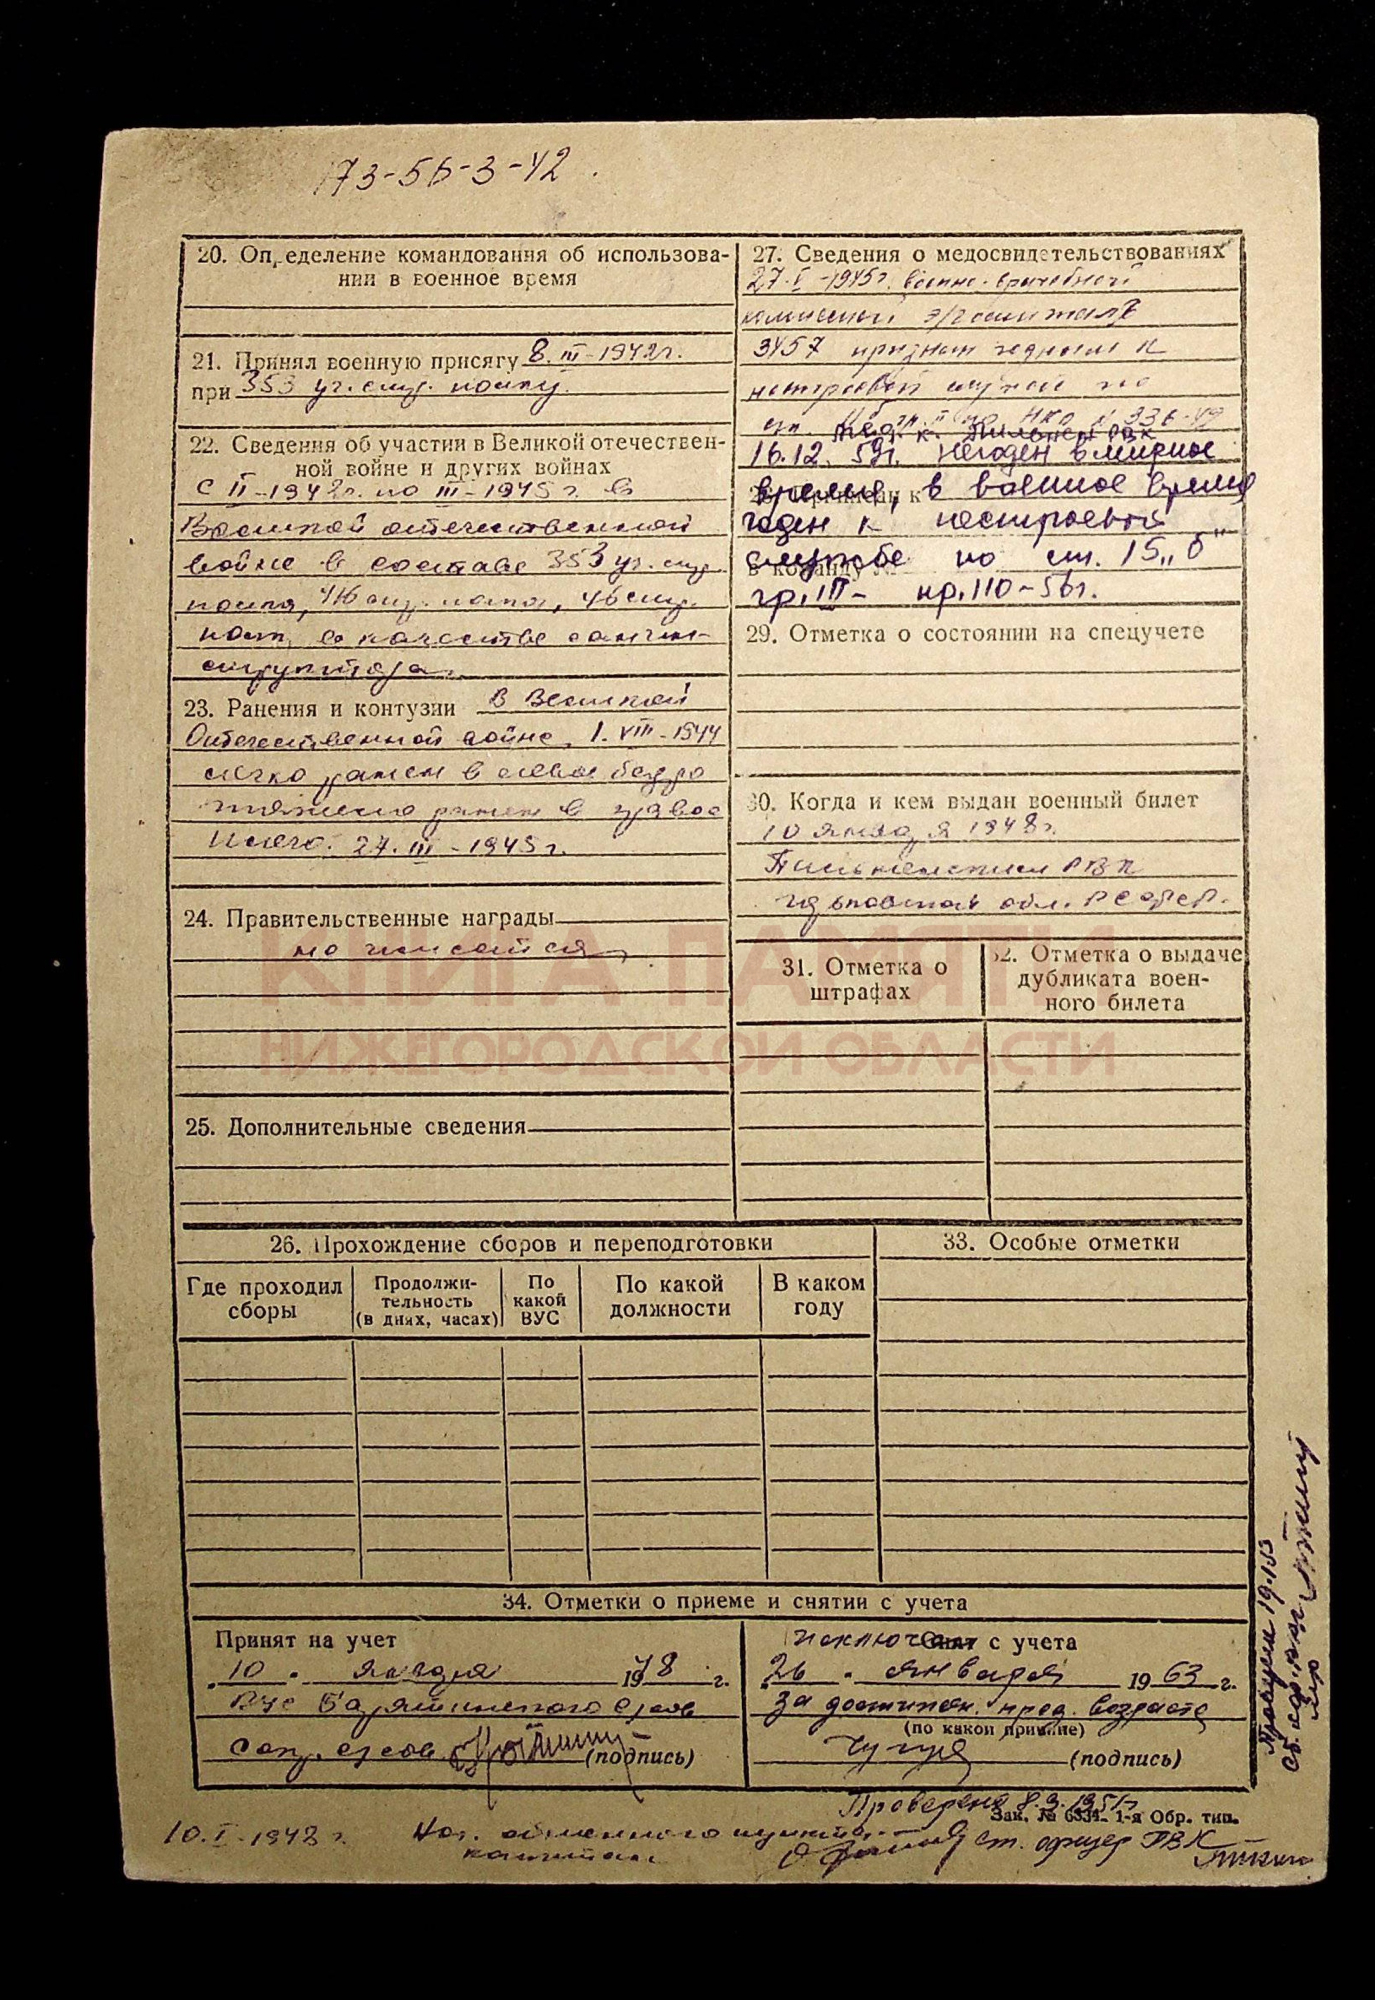 73-5б-3-42.
20. Определение командования об использова-
нии в военное время
21. Принял военную присягу 8.III-1942г.
при 353 уч. стр. полку.
22. Сведения об участии в Великой отечествен-
ной войне и других войнах
с II-1942г. по III-1945г. в
Великой отечественной
войне в составе 353 уч. стр.
полка, стр. полка, 46 стр.
полк, в качестве санин-
структора.
23. Ранения и контузии В Великой
Отечественной войне, 1.VIII-1944
легко ранен в левое бедро
тяжело ранен в правое
плечо. 27.III-1945г.
24. Правительственные награды
не числится
25. Дополнительные сведения
26. Прохождение сборов и переподготовки
Где проходил сборы
Продолжи-тельность (в днях, часах)
По какой ВУС
По какой должности
В каком году
27. Сведения о медосвидетельствованиях
27.I-1945г. военно-врачебной
комиссией э/госпиталь
3457 признан годным к
нестроевой службе по
ст. гр. II пр. НКО № 336-42
Мед. к. РВК
16.12.59г. негоден в мирное
время, в военное время
годен к нестроевой
в команду №
службе по ст. 15 „б"
гр. III - пр. 110-56г.
29. Отметка о состоянии на спецучете
30. Когда и кем выдан военный билет
10 января 1948г.
РВК
Горьковской обл. РСФСР.
31. Отметка о штрафах
32. Отметка о выдаче дубликата воен-ного билета
КНИГА ПАМЯТИ
НИЖЕГОРОДСКОЙ ОБЛАСТИ
33. Особые отметки
34. Отметки о приеме и снятии с учета
Принят на учет
„10" января 1948 г.
ВУС
(подпись)
исключен Снят с учета
„26" января 1963 г.
за достижен. пред. возраста
(по какой причине)
(подпись)
Проверено 8.9.1951г.
Зак. № 6334 1-я Обр. тип.
10.I-1948г. Нач. обменного пункта
капитан
ст. офицер РВК